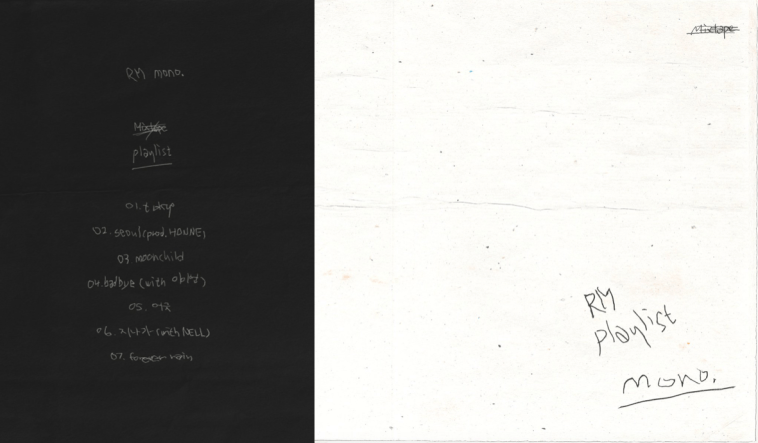 RM mono.
Mixtape
playlist
01. tokyo
02. seoul (prod. HONNE)
03 moonchild
04. badbye (with 이이언)
05. 어긋
06. 지나가 (with NELL)
07. forever rain
Mixtape
RM
playlist
mono.